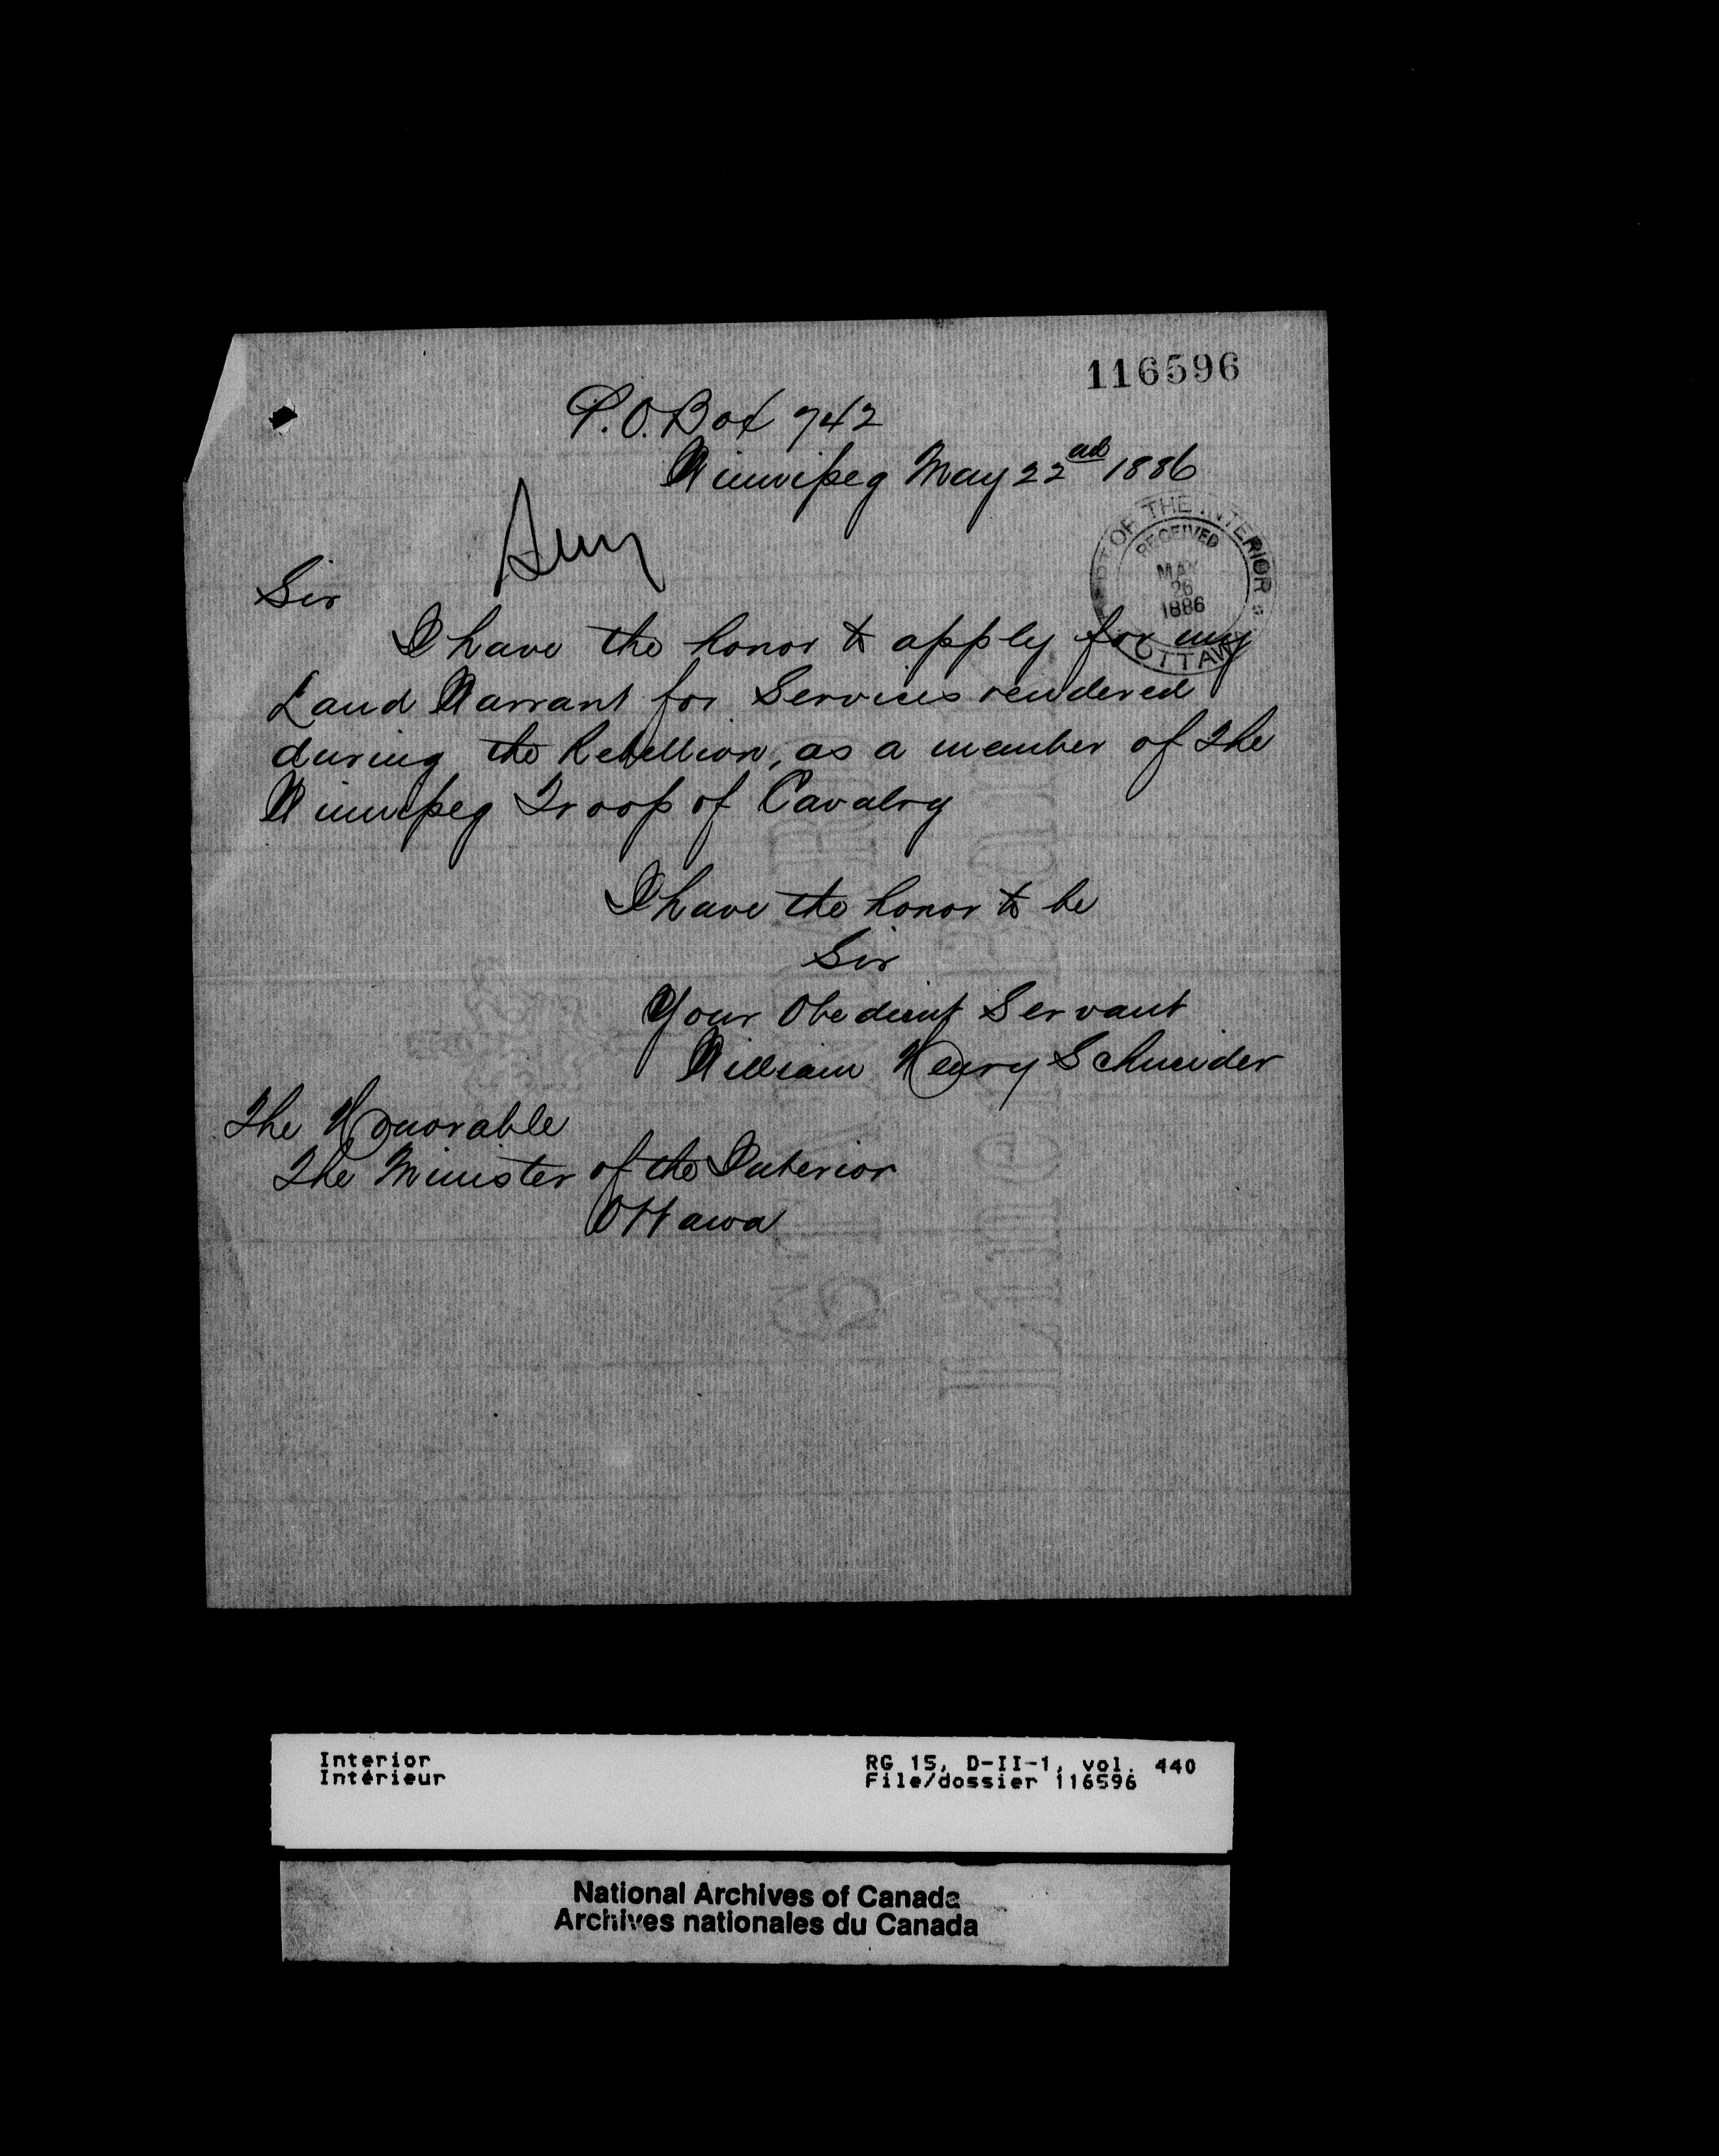 116596
P.O. Box 742
Winnipeg May 22nd 1886
DEPT OF THE INTERIOR
RECEIVED
MAY
26
1886
OTTAWA
Sir
I have the honor to apply for my
Land Warrant for Services rendered
during the Rebellion, as a member of the
Winnipeg Troop of Cavalry
I have the honor to be
Sir
Your Obedient Servant
William Henry Schneider
The Honorable
The Minister of the Interior
Ottawa
Interior
Intérieur
RG 15, D-II-1, vol. 440
File/dossier 116596
National Archives of Canada
Archives nationales du Canada